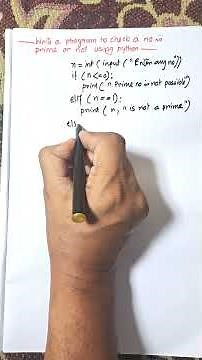 Write a program to check a no is
prime or not using python
n = int ( input ( " Enter any no"))
if ( n <= 0):
print ( n, Prime no is not possible")
elif ( n == 1):
print ( n, n is not a prime")
els